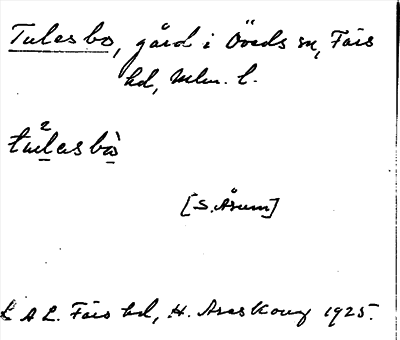 Tulesbo, gård i Öveds sn, Färs
hd, Mlm. l.
tu²lasbò
[S. Åsum]
L A L. Färs hd, H. Areskoug 1925.